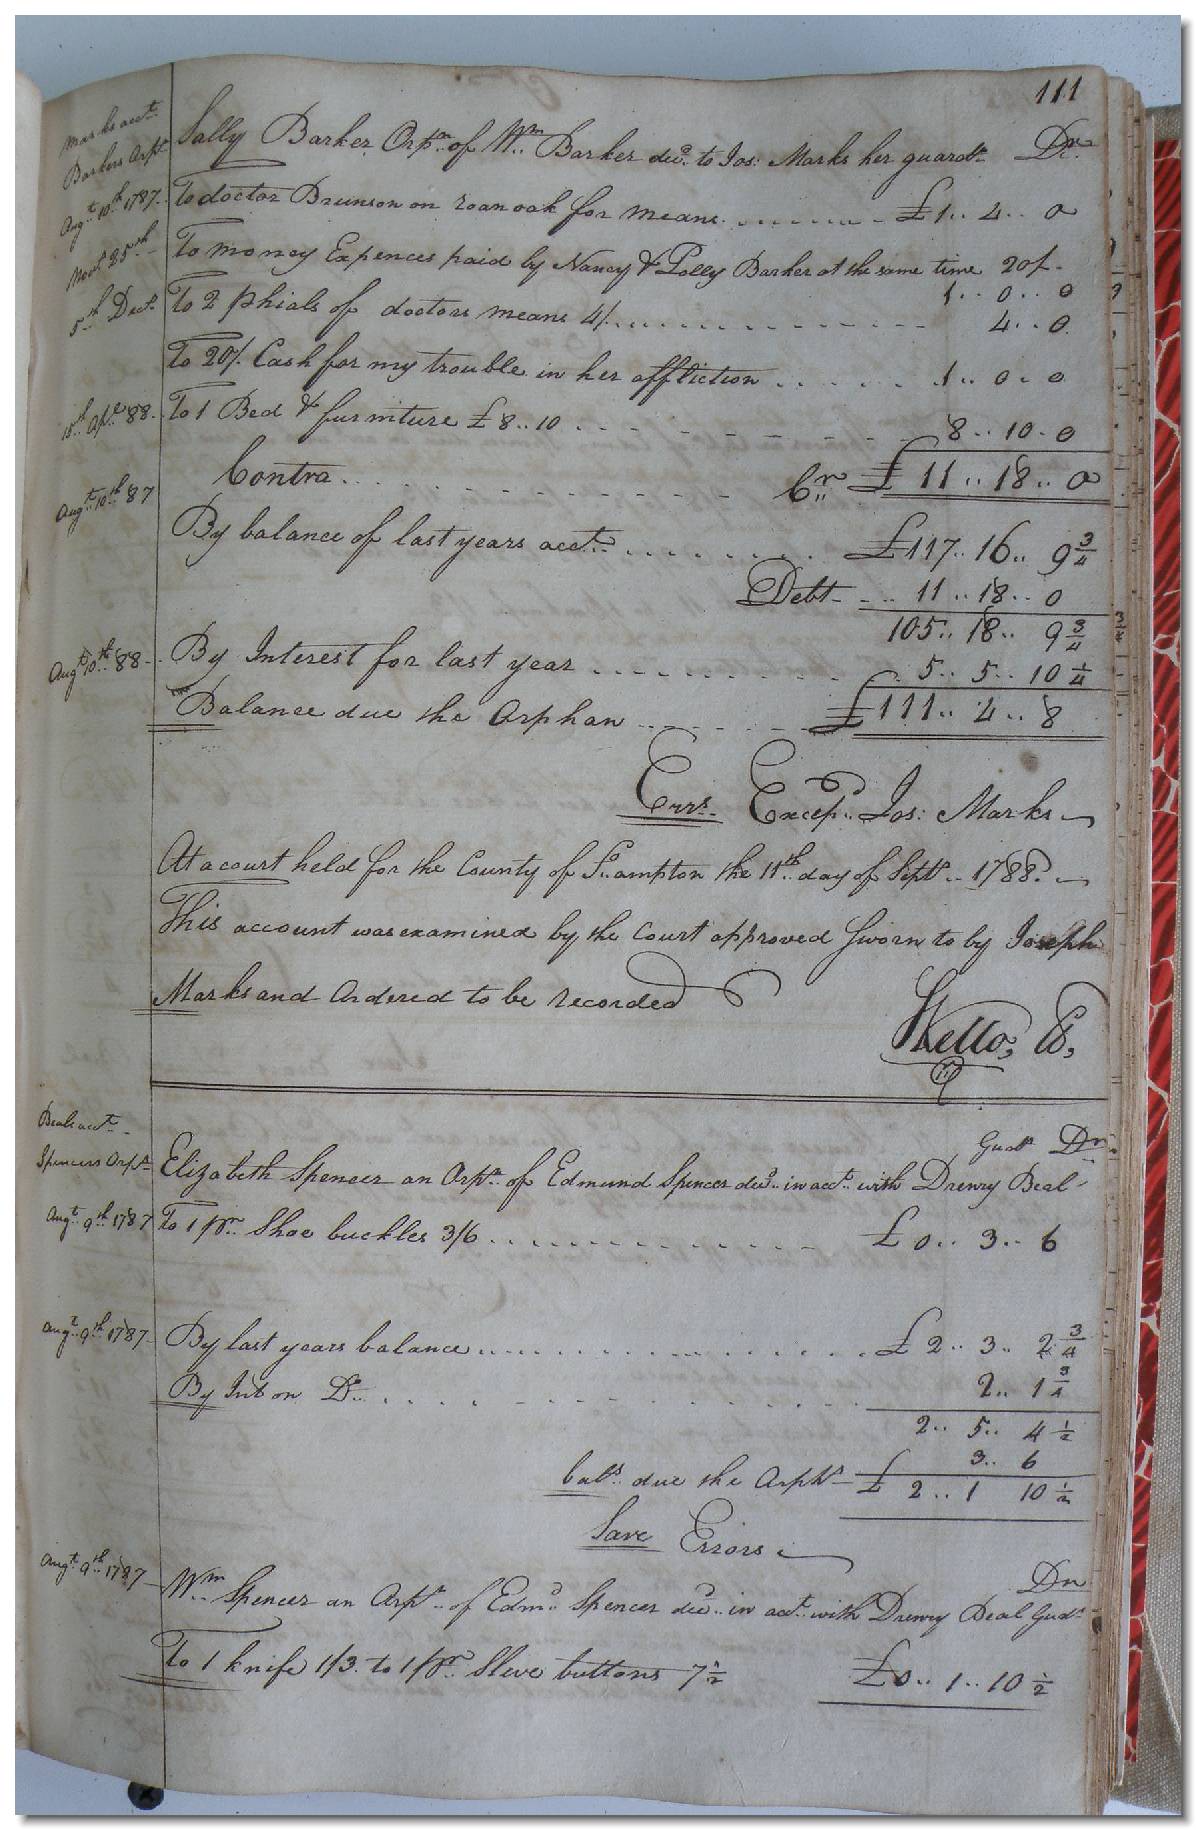 111
Marks acct.
Barkers Orpt.
Sally Barker Orpn. of Wm. Barker decd. to Jos: Marks her guardn. Dr.
Augt. 10th 1787. To doctor Brunson on roanoak for means £1.. 4.. 0
Novr. 25th To money Expences paid by Nancy & Polly Barker at the same time 20/-
1.. 0.. 0
5th Decr. To 2 phials of doctors means 4/. 4.. 0
To 20/. Cash for my trouble in her affliction 1.. 0.. 0
10th Apl. 88. To 1 Bed & furniture £8..10 8.. 10.. 0
Contra Cr. £11.. 18.. 0
Augt. 10th 87
By balance of last years acct. £117.. 16.. 9 3/4
Debt 11.. 18.. 0
105.. 18.. 9 3/4
Augt. 10th 88 By Interest for last year 5.. 5.. 10 1/4
Balance due the Orphan £111.. 4.. 8
Errs. Excep. Jos: Marks
At a court held for the County of So.ampton the 11th day of Sept. 1788.
This account was examined by the Court approved Sworn to by Joseph
Marks and Ordered to be recorded
Kello, C.
Beals acct.
Spencers Orpt.
Gudn. Dr.
Elizabeth Spencer an Orpn. of Edmund Spencer decd. in acct. with Drewry Beal
Augt. 9th 1787 To 1 pr. Shoe buckles 3/6 £0.. 3.. 6
Augt. 9th 1787. By last years balance £2.. 3.. 2 3/4
By Int on Do. 2.. 1 3/4
2.. 5.. 4 1/2
3.. 6
bals. due the Orphn. £2.. 1 10 1/2
Save Errors
Augt. 9th 1787 Dr
Wm. Spencer an Orpn. of Edmd. Spencer decd. in acct. with Drewry Beal Gudn.
To 1 knife 1/3. to 1 pr. Sleve buttons 7 1/2 £0.. 1.. 10 1/2